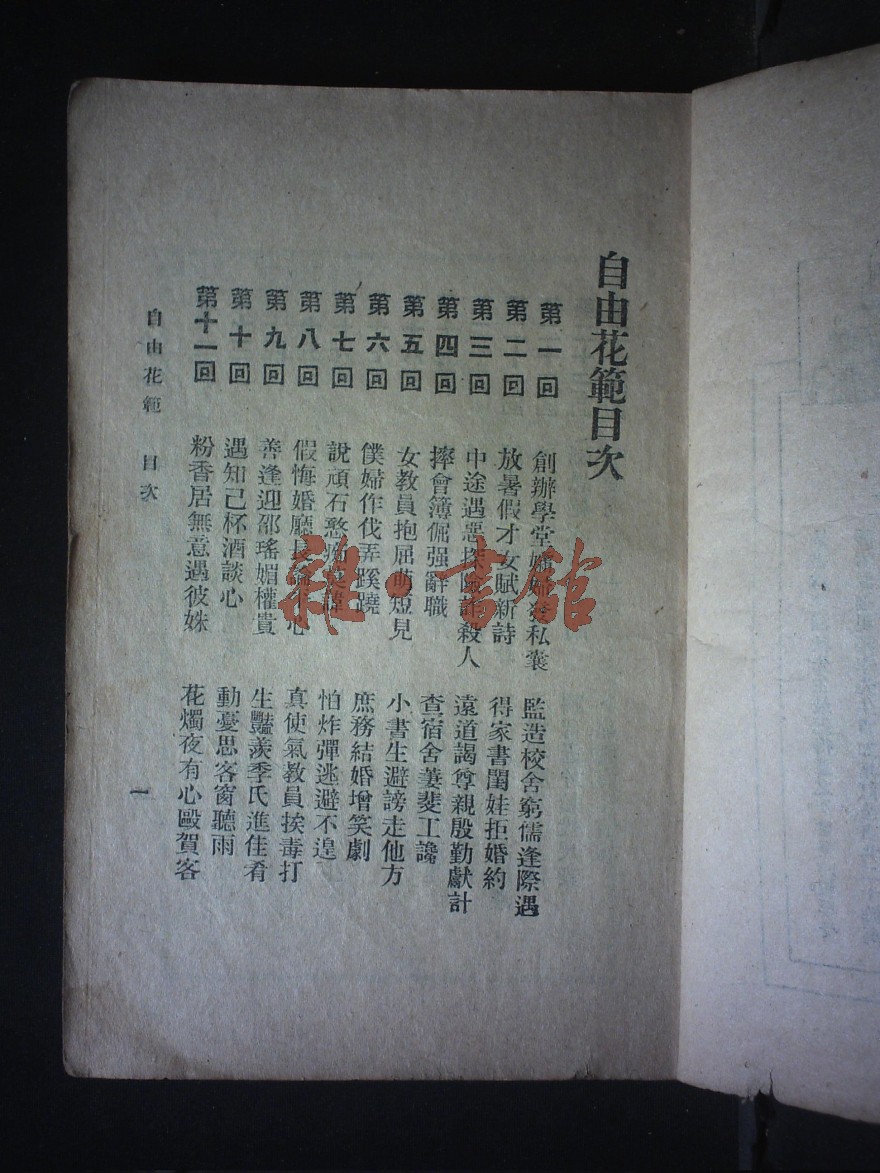 自由花範目次
第一回 創辦學堂 發私囊 監造校舍窮儒逢際遇
第二回 放暑假才女賦新詩 得家書閨娃拒婚約
第三回 中途遇惡探 殺人 遠道謁尊親殷勤獻計
第四回 摔會簿倔强辭職 查宿舍萋斐工讒
第五回 女教員抱屈萌短見 小書生避謗走他方
第六回 僕婦作伐弄蹊蹺 庶務結婚增笑劇
第七回 說頑石憨 怕炸彈逃避不遑
第八回 假悔婚廳長 心 真使氣教員挨毒打
第九回 善逢迎邵瑤媚權貴 生豔羨季氏進佳肴
第十回 遇知己杯酒談心 動憂思客窗聽雨
第十一回 粉香居無意遇彼姝 花燭夜有心毆賀客
自由花範 目次
一
雜·書館